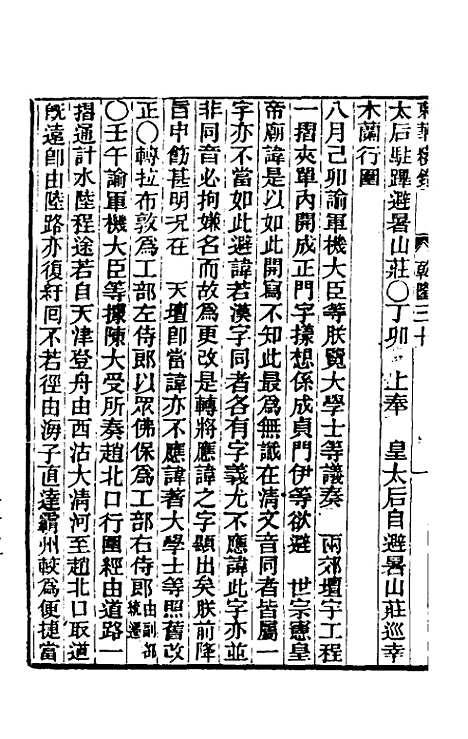 東華續錄　乾隆三十　一
太后駐蹕避暑山莊〇丁卯　上奉　皇太后自避暑山莊巡幸
木蘭行圍
八月己卯諭軍機大臣等朕覽大學士等議奏　兩郊壇宇工程
一摺夾單內開成正門字樣想係成貞門伊等欲避　世宗憲皇
帝廟諱是以如此開寫不知此最爲無識在清文音同者皆屬一
字亦不當如此避諱若漢字同者各有字義尤不應諱此字亦並
非同音必拘嫌名而故爲更改是轉將應諱之字顯出矣朕前降
旨申飭甚明況在　天壇卽當諱亦不應諱著大學士等照舊改
正〇轉拉布敦爲工部左侍郎以眾佛保爲工部右侍郎由副部統遷
〇壬午諭軍機大臣等據陳大受所奏趙北口行圍經由道路一
摺通計水陸程途若自天津登舟由西沽大清河至趙北口取道
旣遠卽由陸路亦復紆囘不若徑由海子直達霸州較爲便捷當